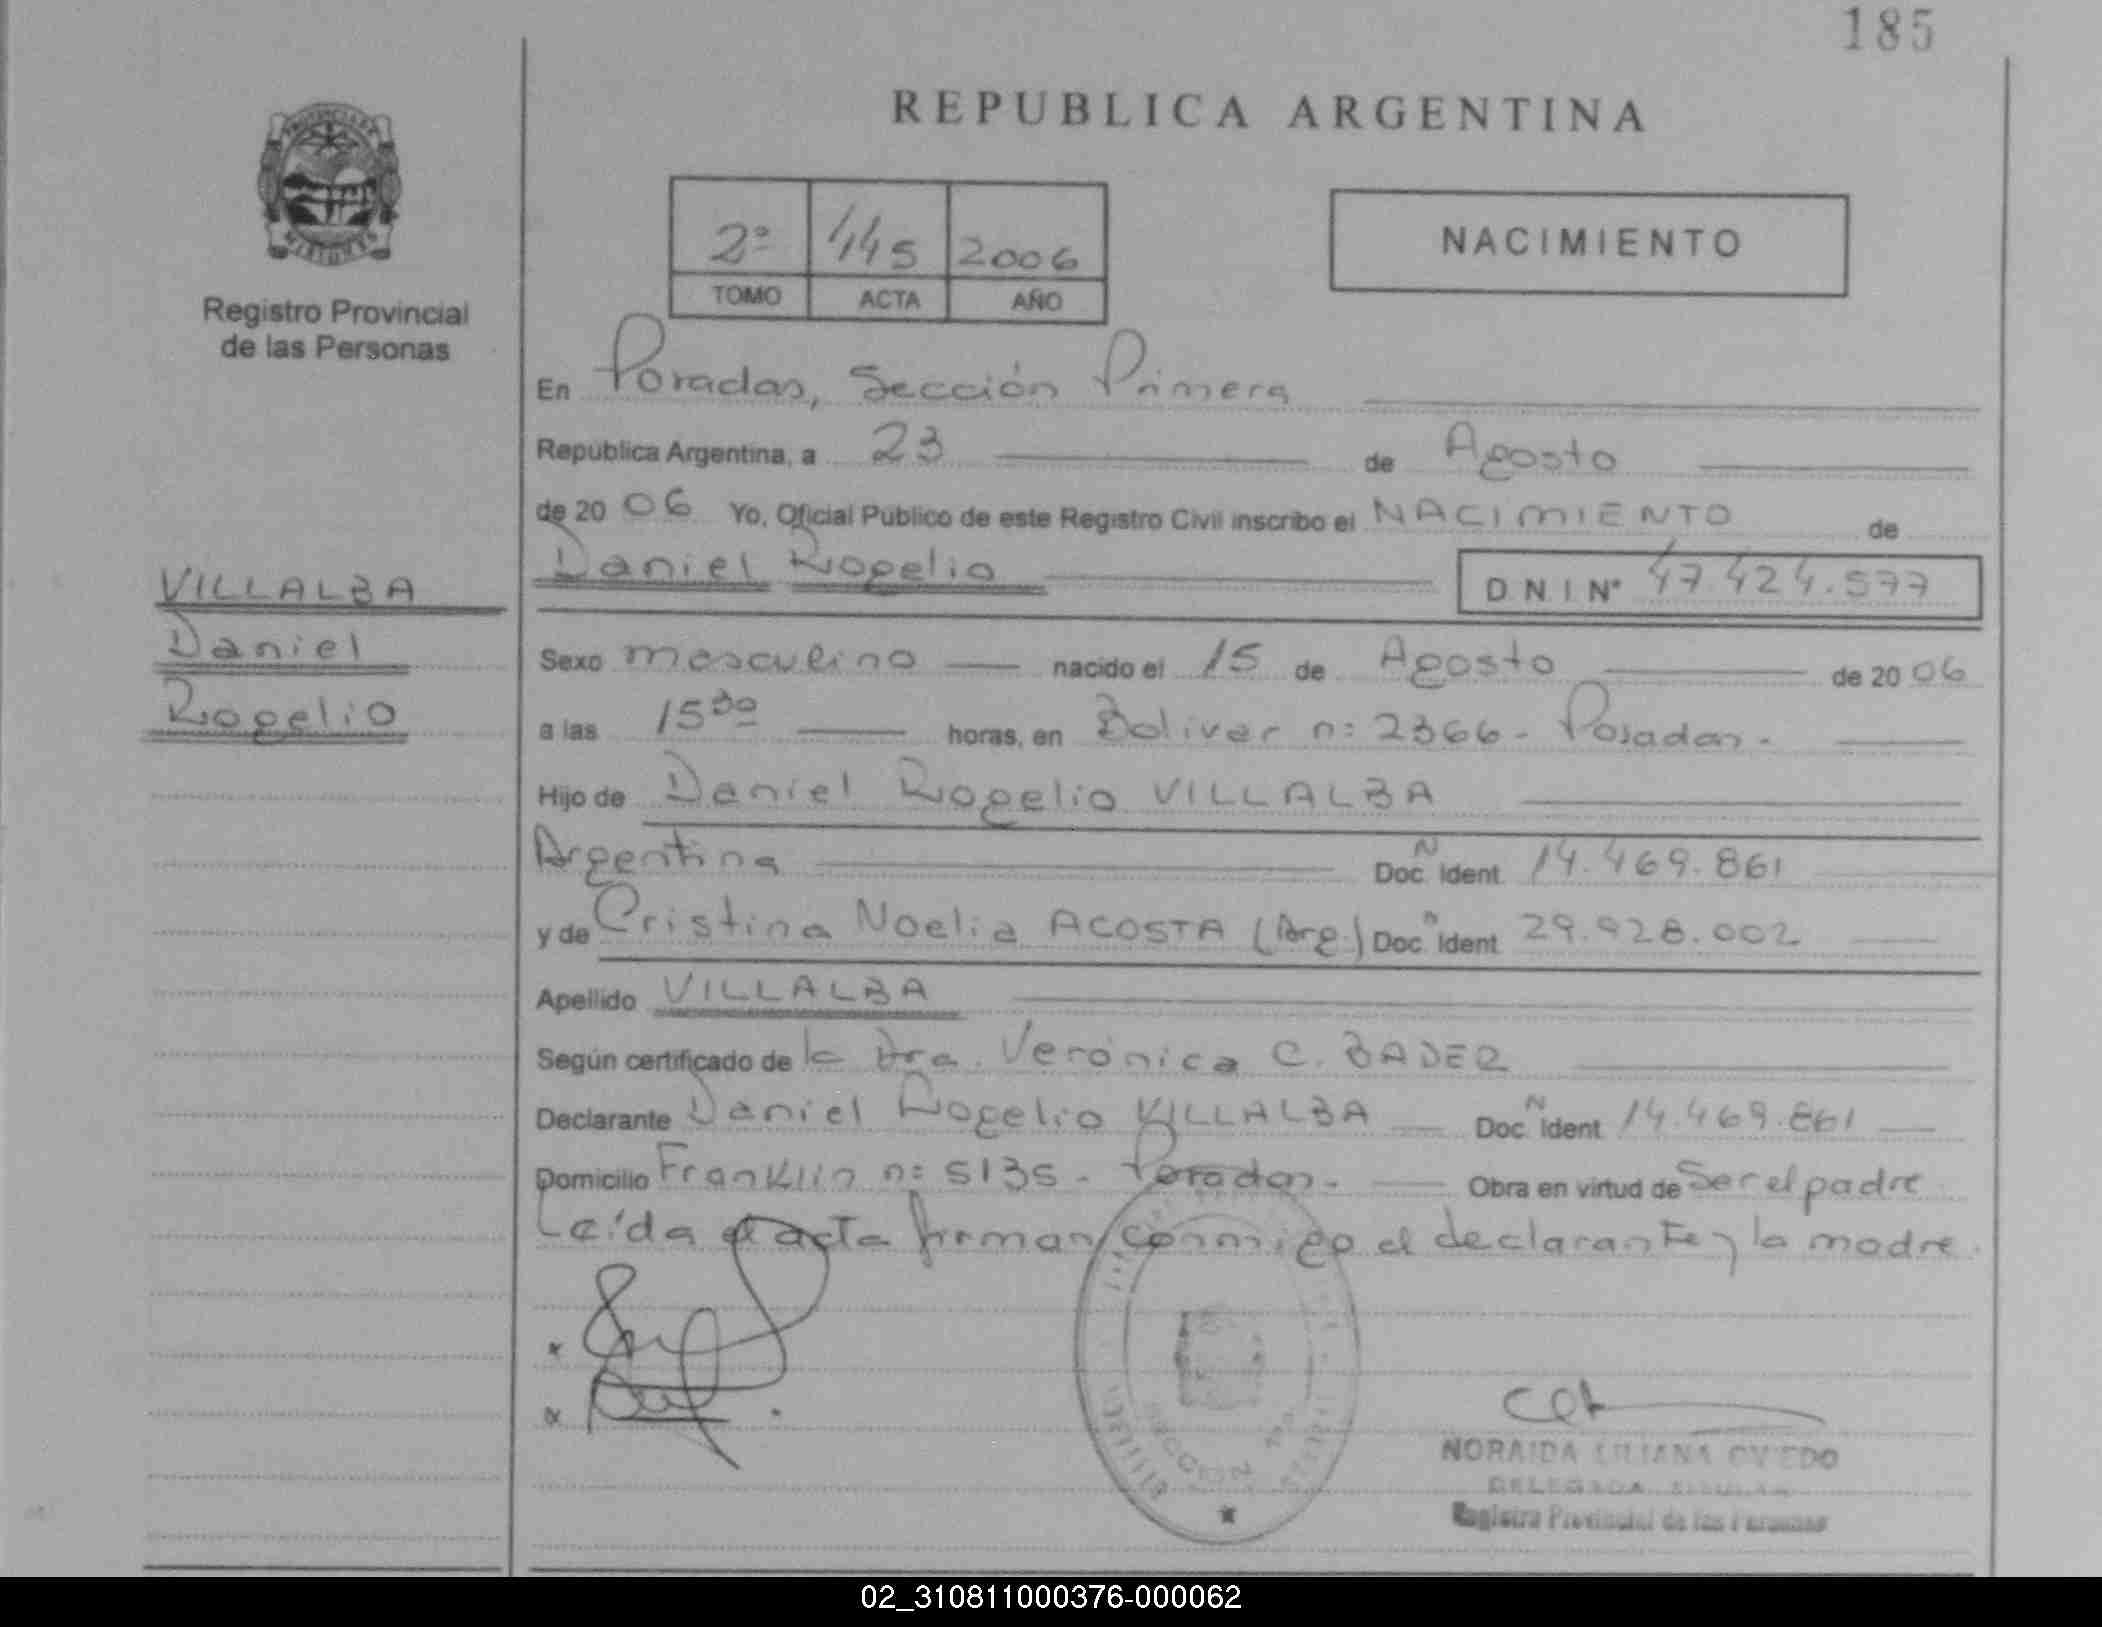 185
REPUBLICA ARGENTINA
2º 445 2006
TOMO ACTA AÑO
NACIMIENTO
MISIONES
Registro Provincial
de las Personas
En Posadas, Sección Primera
República Argentina, a 23 de Agosto
de 20 06 Yo, Oficial Público de este Registro Civil inscribo el NACIMIENTO de
Daniel Rogelio D.N.I Nº 47.424.577
VILLALBA
Daniel
Rogelio
Sexo masculino nacido el 15 de Agosto de 20 06
a las 15³⁰ horas, en Bolivar n: 2366 - Posadas -
Hijo de Daniel Rogelio VILLALBA
Argentina Doc. N Ident 14.469.861
y de Cristina Noelia ACOSTA (Arg.) Doc. N Ident 29.928.002
Apellido VILLALBA
Según certificado de la Dra. Verónica C. BADER
Declarante Daniel Rogelio VILLALBA Doc. N Ident 14.469.861
Domicilio Franklin n: 5135 - Posadas - Obra en virtud de Ser el padre
Leída el acta firman conmigo el declarante y la madre.
SECCION 1ra
NORAIDA LILIANA OVIEDO
DELEGADA TITULAR
Registro Provincial de las Personas
02_310811000376-000062